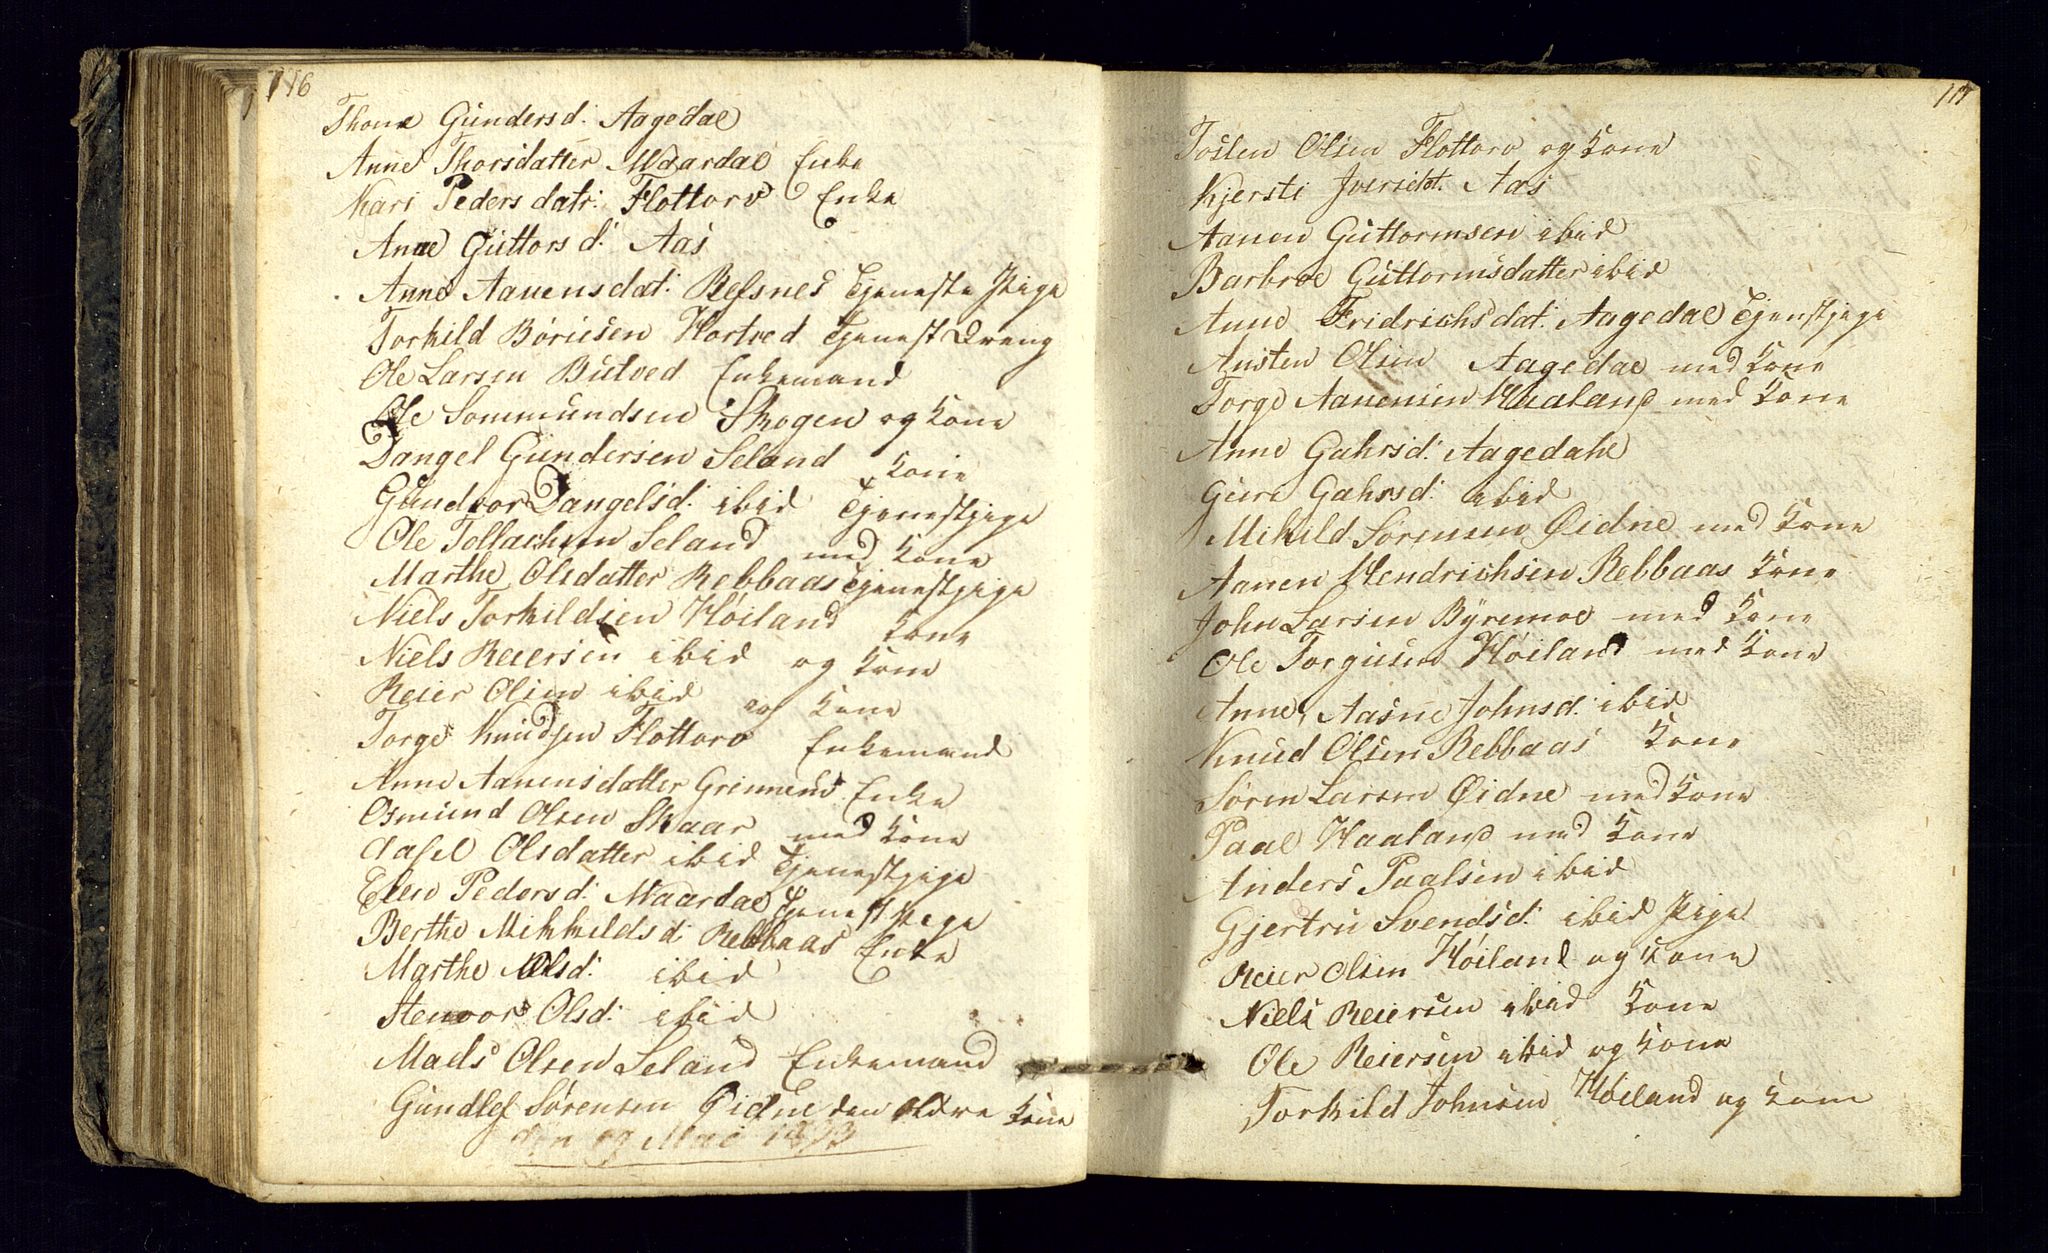 116
Thone Gundersd: Aagedal
Anne Thorsdatter Maardal Enke
Kari Peders datr: Flottorv Enke
Anne Guttorsd: Aas
Anne Aanensdat: Refsnes Tjeneste Pige
Torkild Børiesen Hortved Tjenest Dreng
Ole Larsen Butved Enkemand
Ole Sommundsen Skogen og Kone
Dangel Gundersen Seland Kone
Gundvor Dangelsd: ibid Tjenestpige
Ole Tollachsen Seland med Kone
Marthe Olsdatter Rebbaas Tjenestpige
Niels Torkildsen Høiland Kone
Niels Reiersen ibid og Kone
Reier Olsen ibid og Kone
Torge Knudsen Flottorv Enkemand
Anne Aanensdatter Grimnens Enke
Osmund Olsen Skaar med Kone
Aasel Olsdatter ibid Tjenestpige
Elen Pedersd: Maardal Tjenest Pige
Berthe Mikkelds d: Rebbaas Enke
Marthe Olsd: ibid
Stenvor Olsd: ibid
Mads Olsen Seland Enkemand
Gundlef Sørensen Øidne den Ældre Kone
den 19 Mai 1823
117
Tosten Olsen Flottorv og Kone
Kjersti Iversdt. Aas
Aanen Guttormsen ibid
Barbroe Guttormsdatter ibid
Anne Fridrichsdat: Aagedal Tjenstpige
Austen Olsen Aagedal med Kone
Torge Aanensen Haaland med Kone
Anne Gahrsd: Aagedahl
Guri Gahrsd: ibid
Mikild Sørensen Øidne med Kone
Aanen Hendrichsen Rebbaas Kone
John Larsen Byremoe med Kone
Ole Torgiusen Høiland med Kone
Anne, Aasne Johnsd: ibid
Knud Olsen Rebbaas Kone
Søren Larsen Øidne med Kone
Paal Haaland med Kone
Anders Paalsen ibid
Gjertru Svendsd: ibid Pige
Reier Olsen Høiland og Kone
Niels Reiersen ibid Kone
Ole Reiersen ibid og Kone
Torkild Johnsen Høiland og Kone